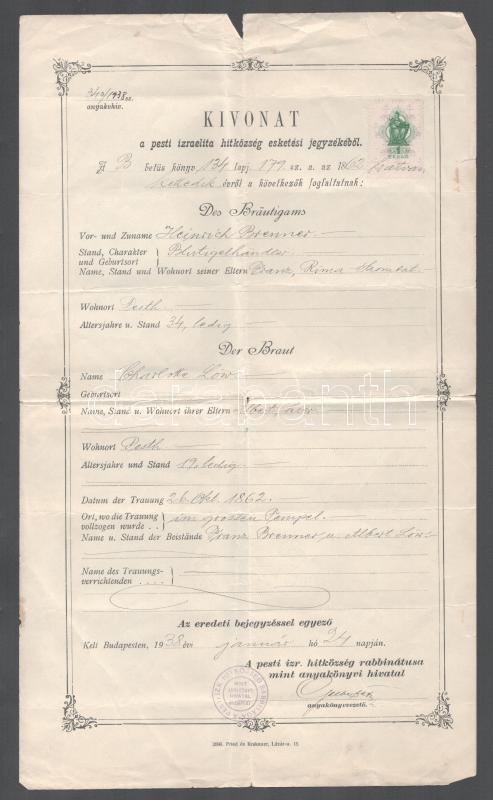 342/1938 sz.
anyakvkiv.
KIVONAT
a pesti izraelita hitközség esketési jegyzékéből.
A B betüs könyv 134 lapj. 179 sz. a. az 1862 hatvan
kettedik évről a következők foglaltatnak:
Des Bräutigams
Vor- und Zuname Heinrich Brenner
Stand, Charakter und Geburtsort Blutigelhändler
Name, Stand und Wohnort seiner Eltern Franz, Rima Szombat
Wohnort Pesth
Altersjahre u. Stand 34, ledig
Der Braut
Name Charlotte Löw
Geburtsort
Name, Stand u. Wohnort ihrer Eltern Albert
Wohnort Pesth
Altersjahre und Stand 19, ledig
Datum der Trauung 26 Okt. 1862.
Ort, wo die Trauung vollzogen wurde . . im grossen Tempel.
Name u. Stand der Beistände Franz Brenner u. Albert Löw
Name des Trauungsverrichtenden . . . .
Az eredeti bejegyzéssel egyező
Kelt Budapesten, 1938 évi január hó 24 napján.
A pesti izr. hitközség rabbinátusa
mint anyakönyvi hivatal
anyakönyvvezető.
Fried és Krakauer, Lázár-u. 13.
darabanth